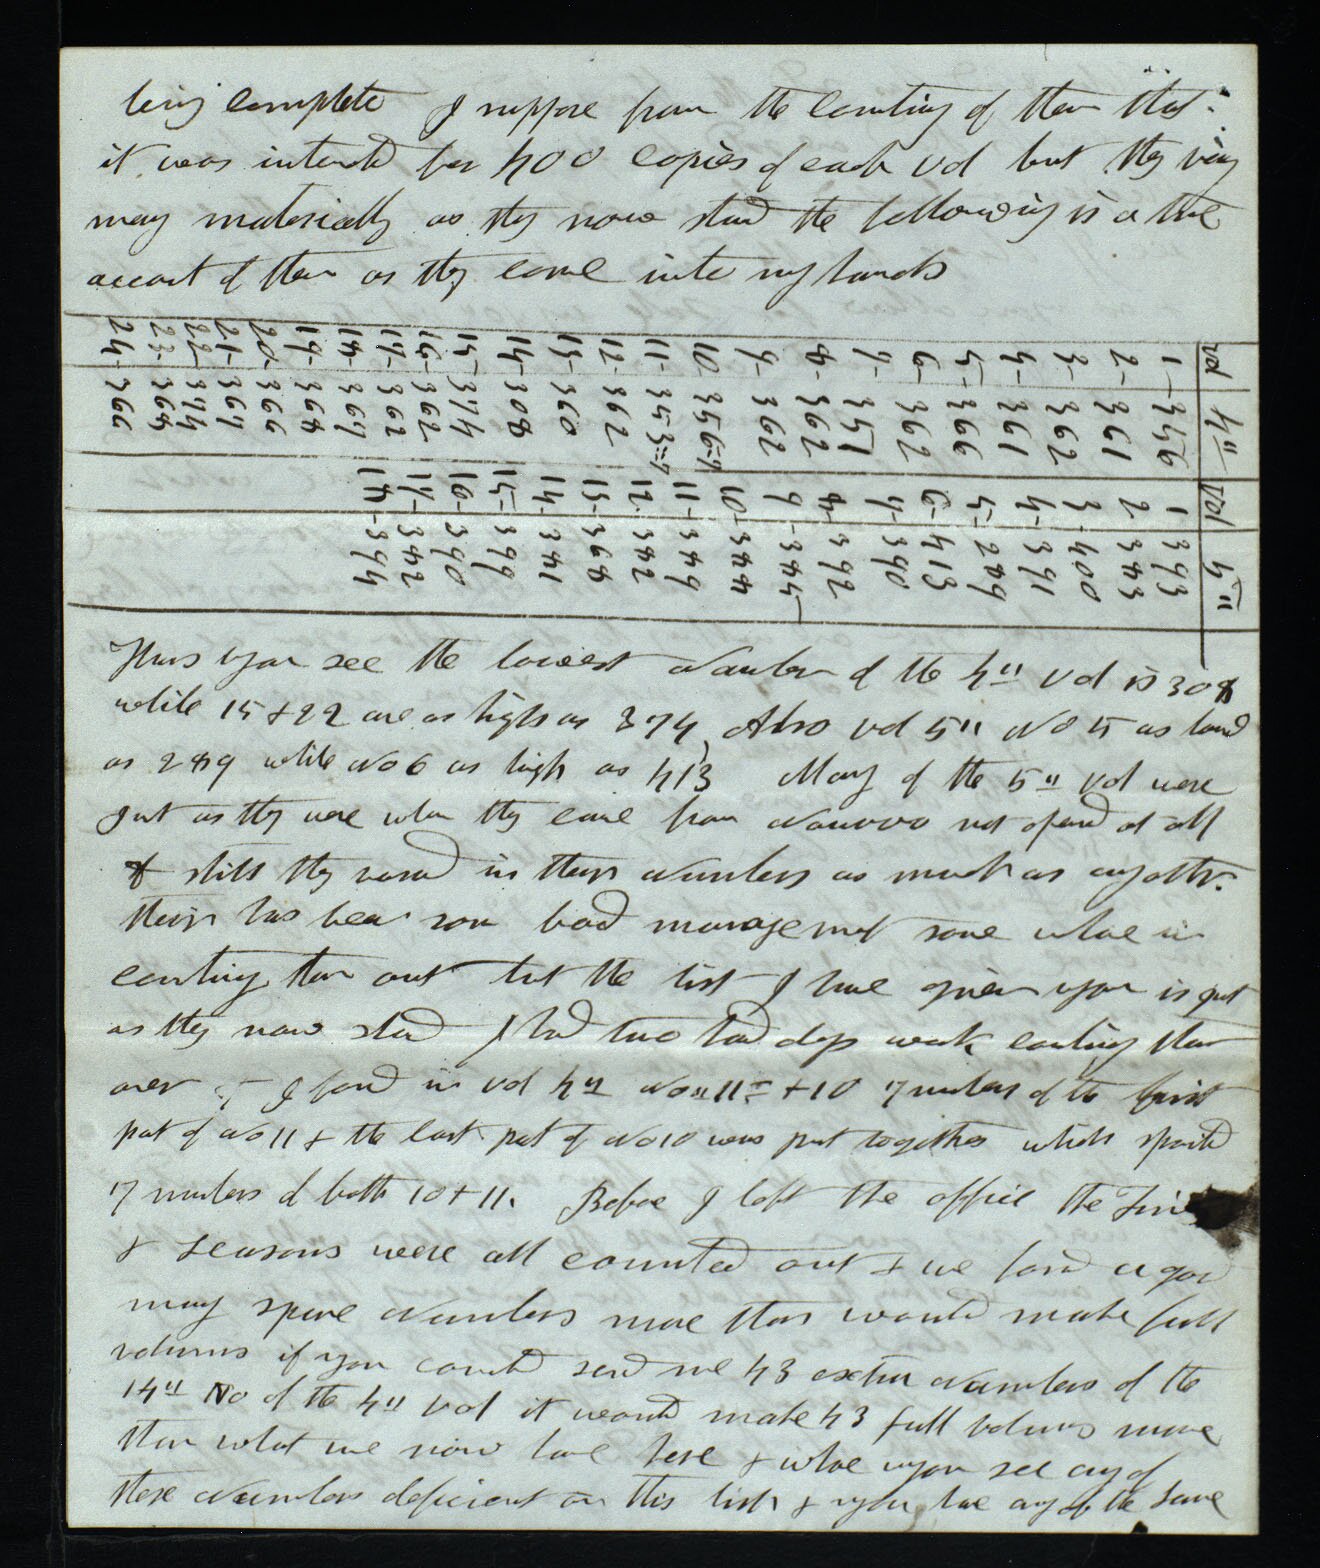 being complete I suppose from the counting of them that
it was intended for 400 copies of each vol but they vary
may materially as they now stand the following is a true
account of them as they come into my hands
vol 4" vol 5"
1- 356 1 393
2- 361 2- 383
3- 362 3- 400
4- 361 4- 391
5- 366 5- 289
6- 362 6- 413
7- 351 7- 390
8- 362 8- 392
9- 362 9- 385
10- 356=7 10- 388
11- 353=7 11- 389
12- 362 12- 382
13- 360 13- 368
14- 308 14- 381
15- 374 15- 399
16- 362 16- 390
17- 362 17- 382
18- 367 18- 394
19- 368
20- 366
21- 367
22- 374
23- 368
24- 366
Thus you see the lowest Number of the 4" vol is 308
while 15 & 22 are as high as 374 Also vol 5" No 5 as low
as 289 while No 6 as high as 413 Many of the 5" vol were
Just as they were when they came from Nauvoo not opend at all
& still they varied in their Numbers as much as any other.
their has bean som bad management some whare in
counting them out but the list I have given you is just
as they now stand I had two hard days work counting them
over I found in vol 4" Nos 11" & 10 7 numbers of the first
part of No 11 & the last part of No 10 was put together which spoild
7 numbers of both 10 & 11. Before I left the office the Times
& seasons were all counted out & we found a good
many spare Numbers more than would make full
volumes if you could send me 43 extra Numbers of the
14" No of the 4" vol it would make 43 full volums more
than what we now have here & whare you see any of
these Numbers deficient on this list & you have any of the same